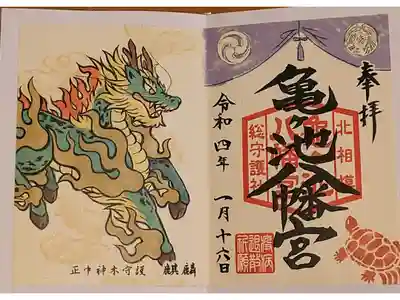 奉拝
亀ヶ池八幡宮
北相模
総守護社
令和四年 一月十六日
疫病
退散
祈願
神木守護 麒麟